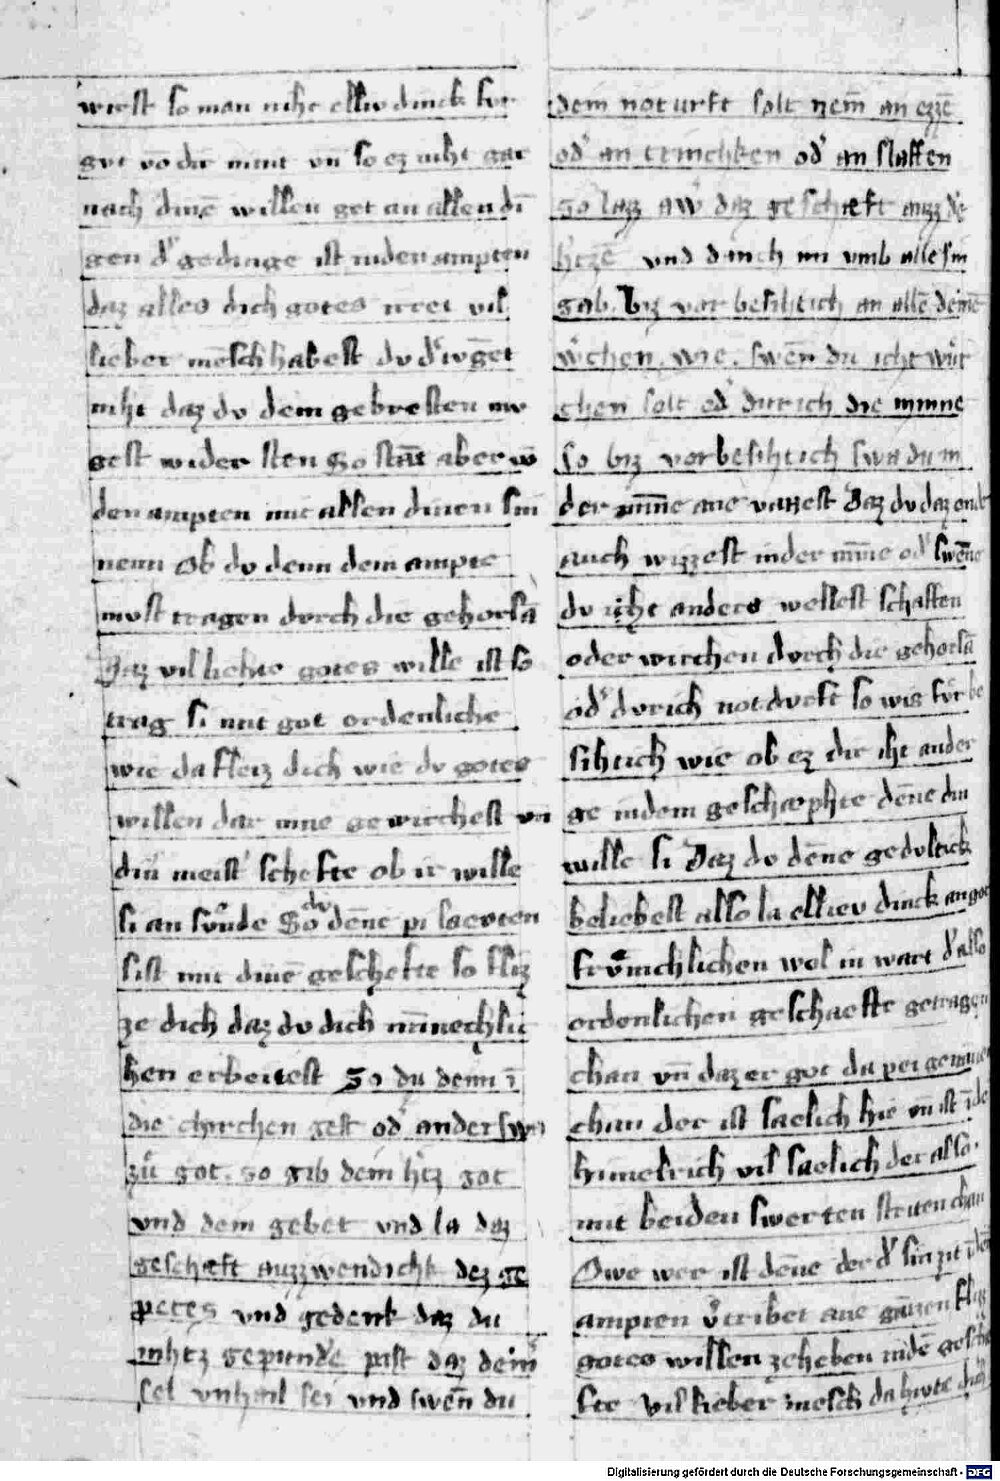 wirst so man niht elliv dinck fvr
gvt võ dir nimt vñ so ez niht gar
nach dinē willen get an allen di
gen dˢ gedinge ist in den ampten
daz alles dich gotes irret vil
lieber mēsch habest dv dˢ iv̄get
niht daz dv dem gebresten mv
gest wider sten so stāt aber vō
den ampten mit allen dinen sin
nenn Ob dv denn dem ampte
mvst tragen dvrch die gehorsā
Daz vil liehte gotes wille ist so
trag si mit got ordenliche
wie da fleiz dich wie dv gotes
willen dar inne gewirchest vñ
din meistˢ schefte ob ir wille
si an svͤnde So dv dēne pi laerten
sist mit dinē geschefte so fliz
ze dich daz dv dich mīnechli
hen erbeitest So du denn ī
die chirchen gest odˢ anderswo
zuͦ got. so gib dein hˢtz got
vnd dem gebet vnd la daz
geschæft auzzwendichk dez ge
petes vnd gedenk daz du
niht ze gepundē pist daz deinˢ
sel vnhail sei vnd swēn du
dein noturft solt nem̄ an ezzē
odˢ an trinchken odˢ an slaffen
so lazz awˢ daz geschæft auzz dē
hˢtzē vnd danch im vmb alle sin
gab. biz vor besihtich an allē deinē
wˢchen. wie. swēn du icht wuͤr
chen solt odˢ durich die minne
so biz vorbesihtich swa du in
der mīne ane vahest Daz dv daz ende
auch wizzest in der mīne odˢ swēne
dv iht anders wellest schaffen
oder wirchen dvrch die gehorsā
odˢ dvrich notdvrft so wis fvͤr be
sihtich wie ob ez dir iht ander
ge in dem geschæphte dēne din
wille si Daz dv dēne gedvltick
beliebest also la elliev dinck an got
frvͤmchlichen wol in wart dˢ also
ordenlichen geschaefte getragen
chan vñ daz er got da pei geminnen
chan der ist saelich hie vñ ist ī dē
himelrich vil saelich der also
mit beiden swerten striten chan
Owe wer ist dēne der dˢ sin zit ī den
ampten vˢtribet ane gātzen fliz
gotes willen ze heben in dē gesche
fte vil lieber mēsch da hvte dich